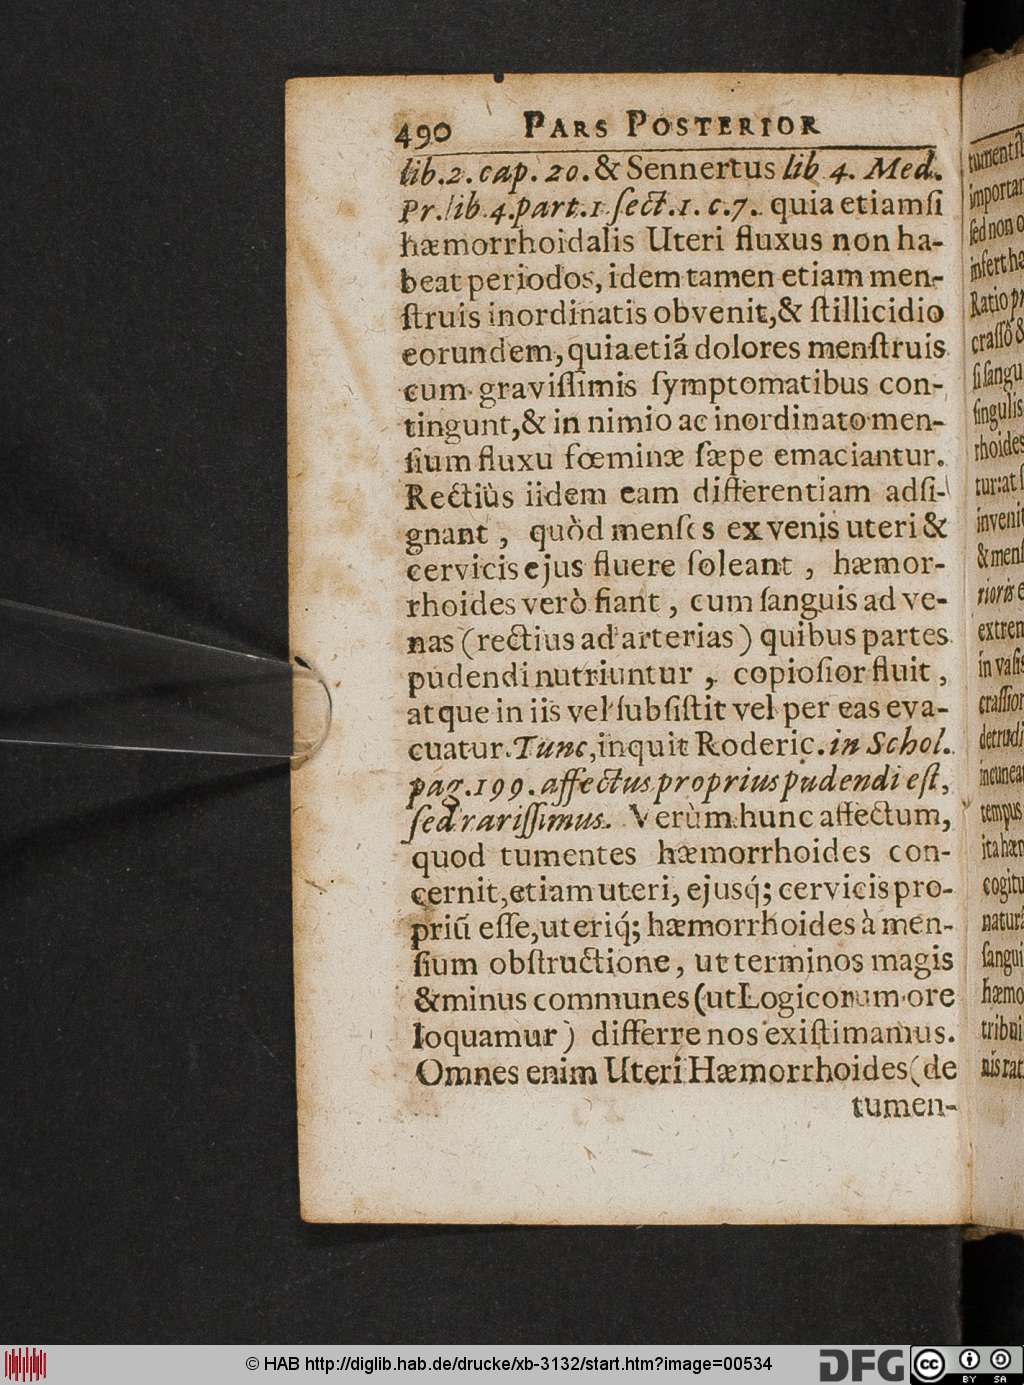 490 PARS POSTERIOR
lib.2. cap. 20. & Sennertus lib 4. Med.
Pr. lib 4. part. 1 ſect. 1. c. 7. quia etiamſi
hæmorrhoidalis Uteri fluxus non ha-
beat periodos, idem tamen etiam men-
ſtruis inordinatis obvenit, & ſtillicidio
eorundem, quia etiá dolores menſtruis
cum graviſſimis ſymptomatibus con-
tingunt, & in nimio ac inordinato men-
ſium fluxu fœminæ ſæpe emaciantur.
Rectiùs iidem eam differentiam adſi-
gnant , quòd menſes ex venis uteri &
cervicis ejus fluere ſoleant , hæmor-
rhoides verò fiant , cum ſanguis ad ve-
nas (rectius ad arterias) quibus partes
pudendi nutriuntur , copioſior fluit ,
atque in iis vel ſubſiſtit vel per eas eva-
cuatur. Tunc, inquit Roderic. in Schol.
pag. 199. affectus proprius pudendi eſt,
ſed rariſſimus. Verùm hunc affectum,
quod tumentes hæmorrhoides con-
cernit, etiam uteri, ejusq́; cervicis pro-
priū eſſe, uteriq́; hæmorrhoides à men-
ſium obſtructione, ut terminos magis
& minus communes (ut Logicorum ore
loquamur) differre nos exiſtimamus.
Omnes enim Uteri Hæmorrhoides (de
tumen-
tumentiſ
importan
ſed non o
infert hæ
Ratio pr
craſſo &
ſi ſangu
ſingulis
rhoides
tur: at ſ
invenit
& menſ
rioris e
extrem
in vaſis
craſſior
detrudi
incunea
tempus
ita hæm
cogitu
natura
ſangui
hæmo
tribui
nis rat
© HAB http://diglib.hab.de/drucke/xb-3132/start.htm?image=00534
DFG
cc BY SA